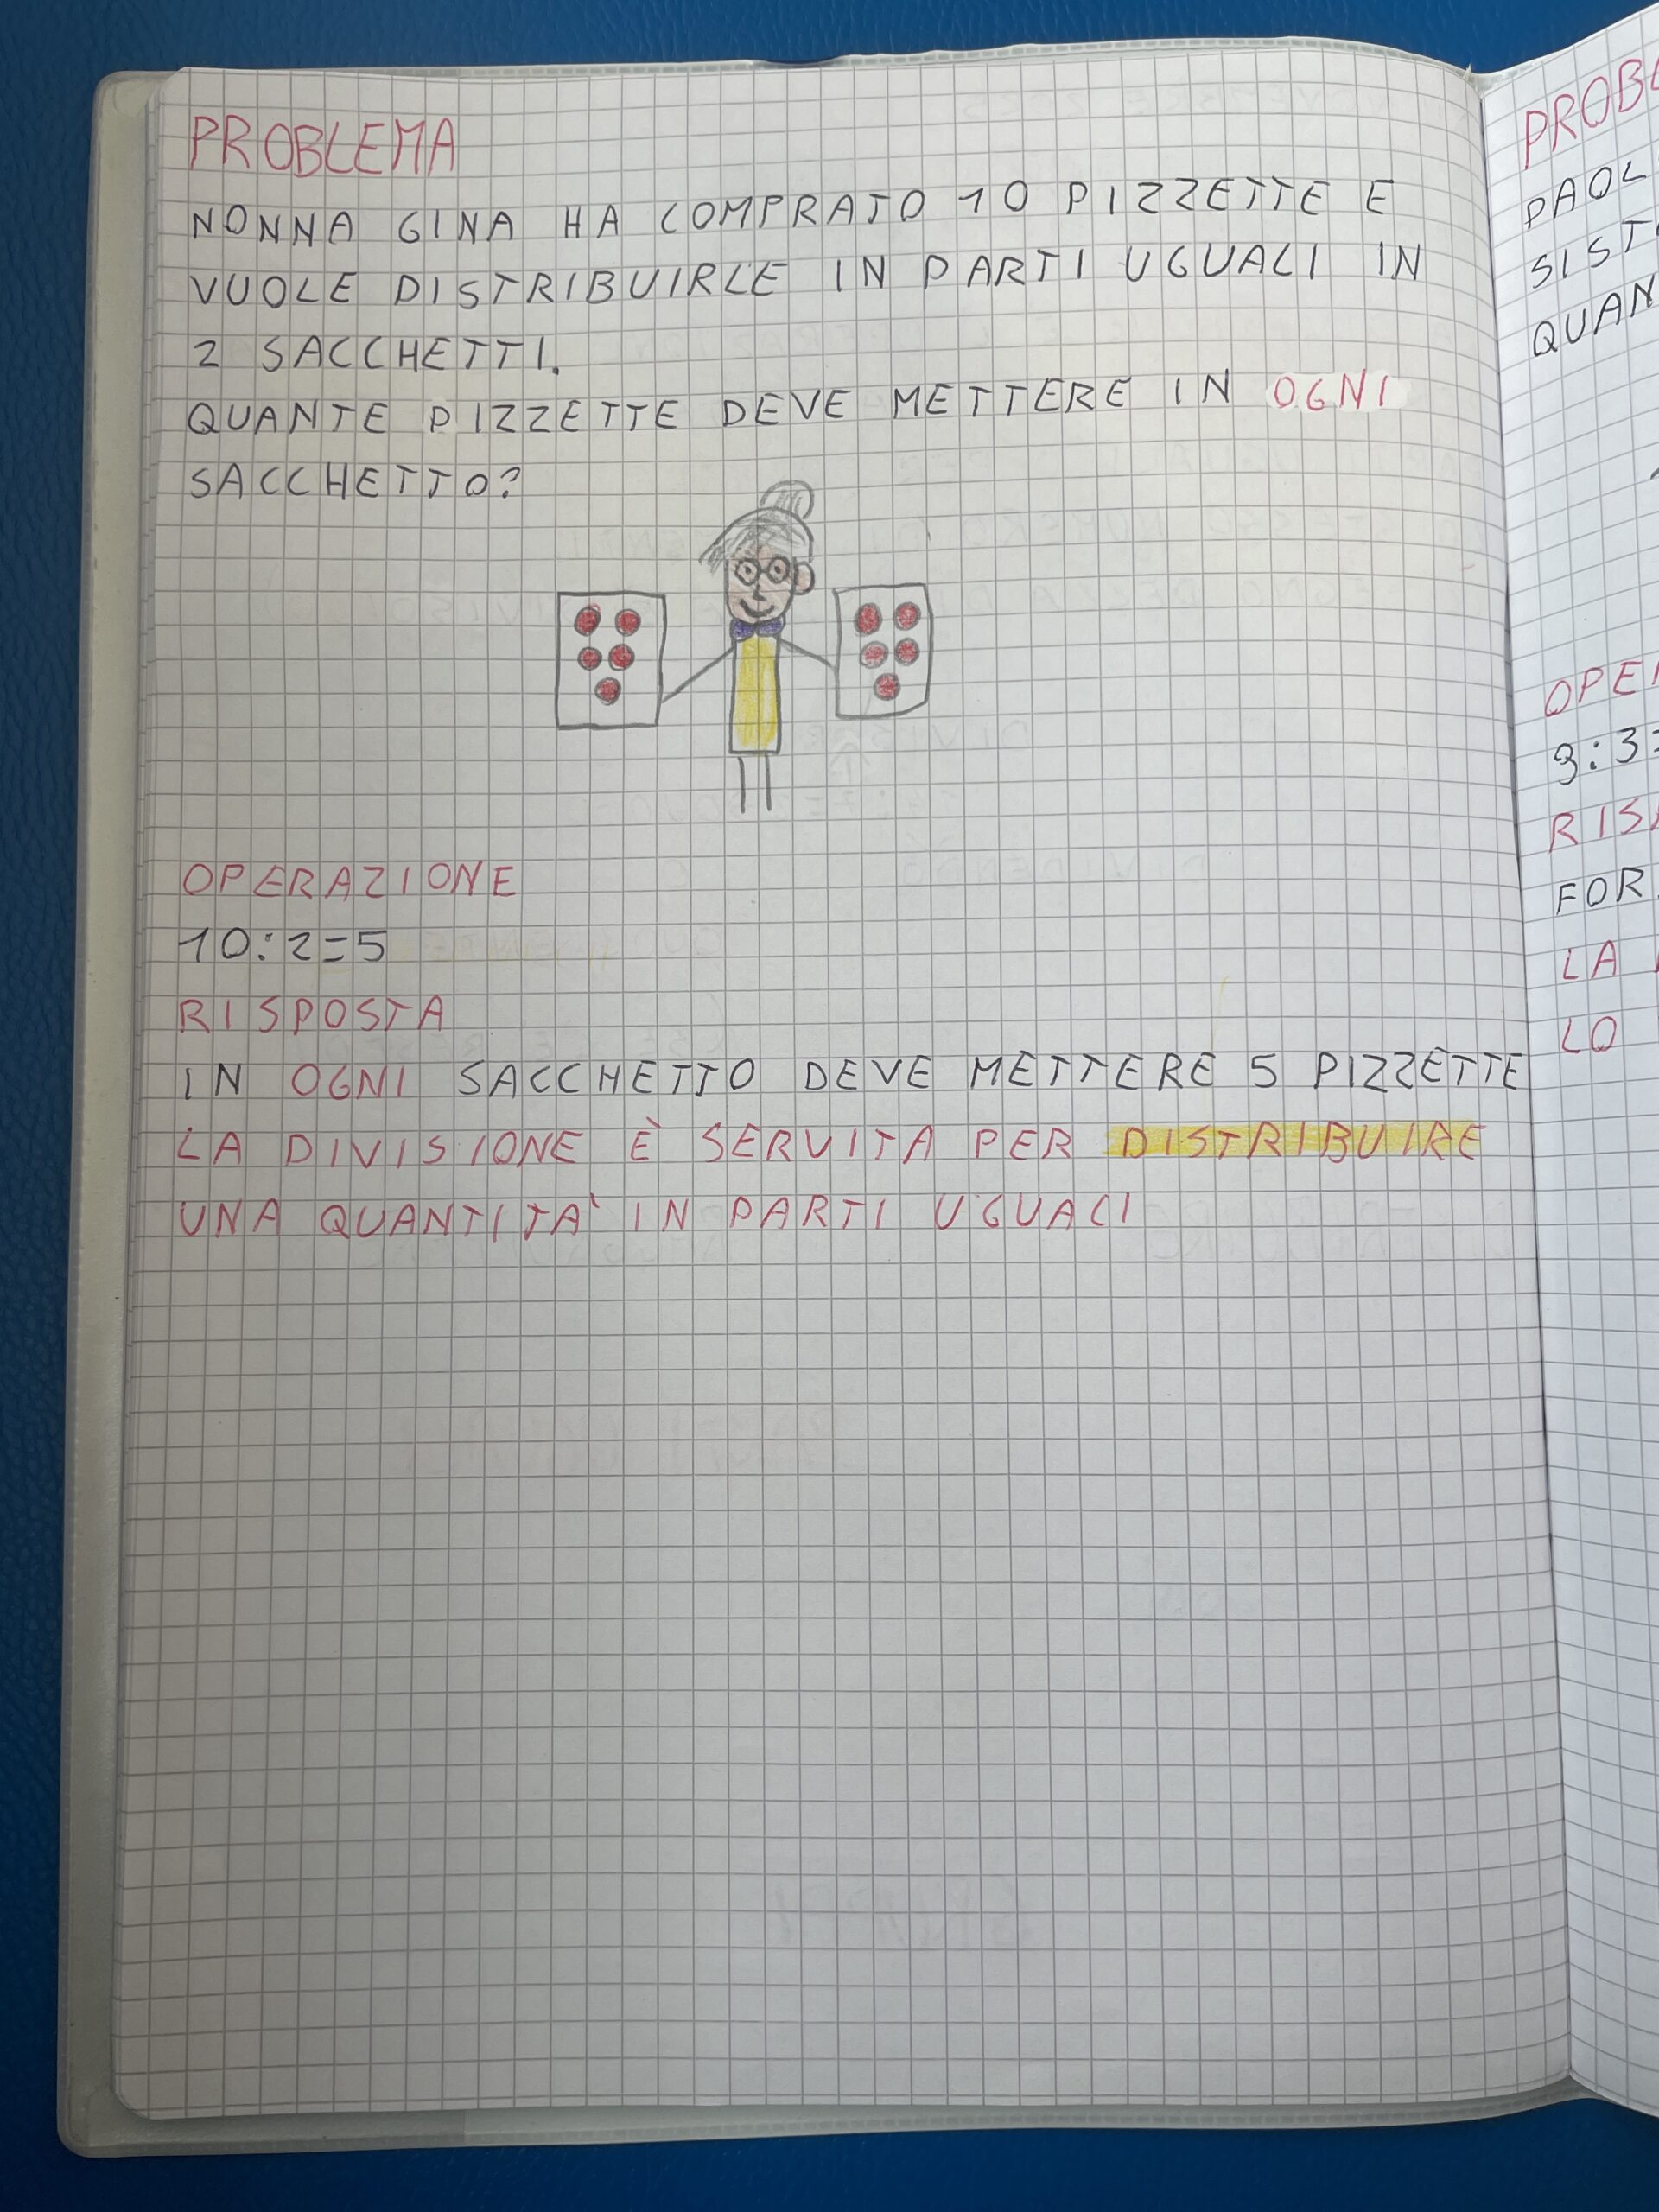 PROBLEMA
NONNA GINA HA COMPRATO 10 PIZZETTE E
VUOLE DISTRIBUIRLE IN PARTI UGUALI IN
2 SACCHETTI.
QUANTE PIZZETTE DEVE METTERE IN OGNI
SACCHETTO?
OPERAZIONE
10:2=5
RISPOSTA
IN OGNI SACCHETTO DEVE METTERE 5 PIZZETTE
LA DIVISIONE È SERVITA PER DISTRIBUIRE
UNA QUANTITA' IN PARTI UGUALI
PROBL
PAOL
SIST
QUAN
OPE
9:3=
RIS
FOR
LA
LO